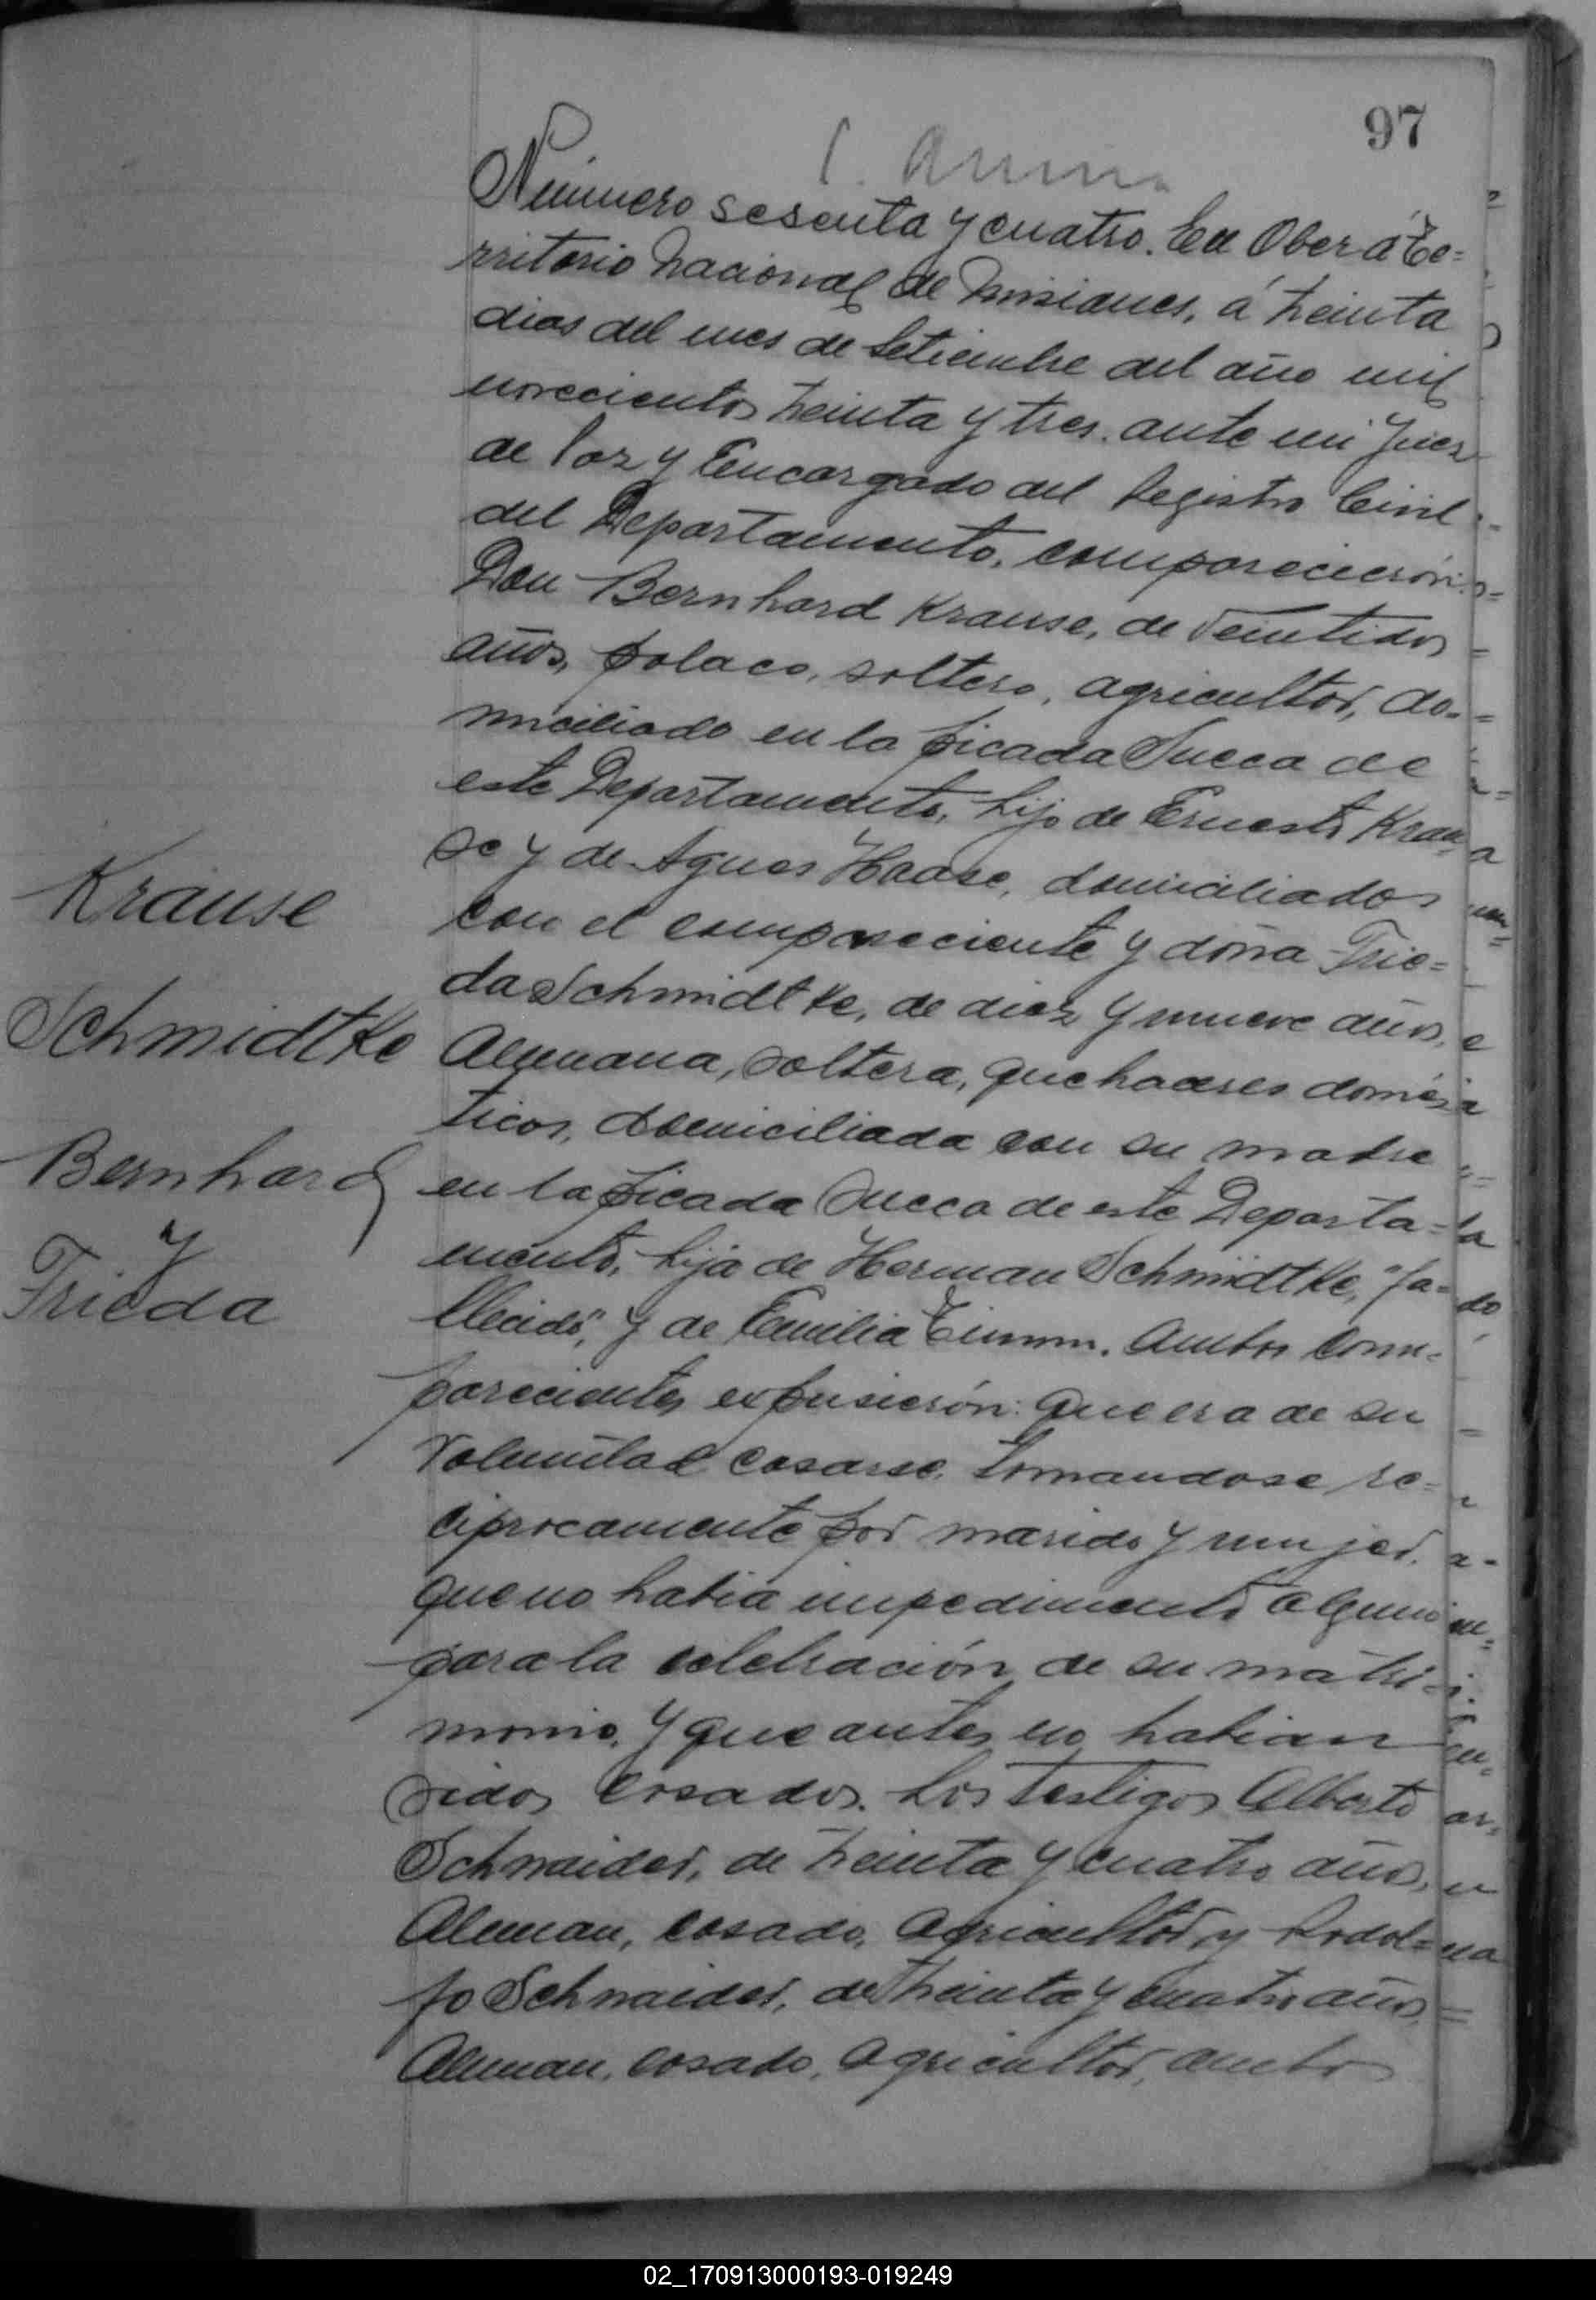 97
Número sesenta y cuatro. En Oberá Te=
rritorio Nacional de Misiones, á treinta
dias del mes de Setiembre del año mil
novecientos treinta y tres. ante mi Juez
de Paz y Encargado del Registro Civil
del Departamento, comparecierón:
Don Bernhard Krause, de veintidos
años, polaco, soltero, agricultor, do-
miciliado en la picada Sueca de
este Departamento, hijo de Ernesto Krau
se y de Agnes Haase, domiciliados
con el compareciente y doña Frie=
da Schmidtke, de diez y nueve años,
Alemana, soltera, quehaceres domés
ticos, domiciliada con su madre
en la picada Sueca de este Departa-
mento, hija de Herman Schmidtke, "fa-
llecido", y de Emilia Timm. Ambos com-
parecientes expusierón: que era de su
voluntad casarse, tomandose re-
ciprocamente por marido y mujer.
que no habia impedimento alguno
para la celebración de su matri-
monio, y que antes no habian
sidos casados. Los testigos Alberto
Schnaider, de treinta y cuatro años,
Aleman, casado, agricultor, y Rodol=
fo Schnaider, de treinta y cuatro años,
Aleman, casado, agricultor, ambos
Krause
Schmidtke
Bernhard
y
Frieda
02_170913000193-019249